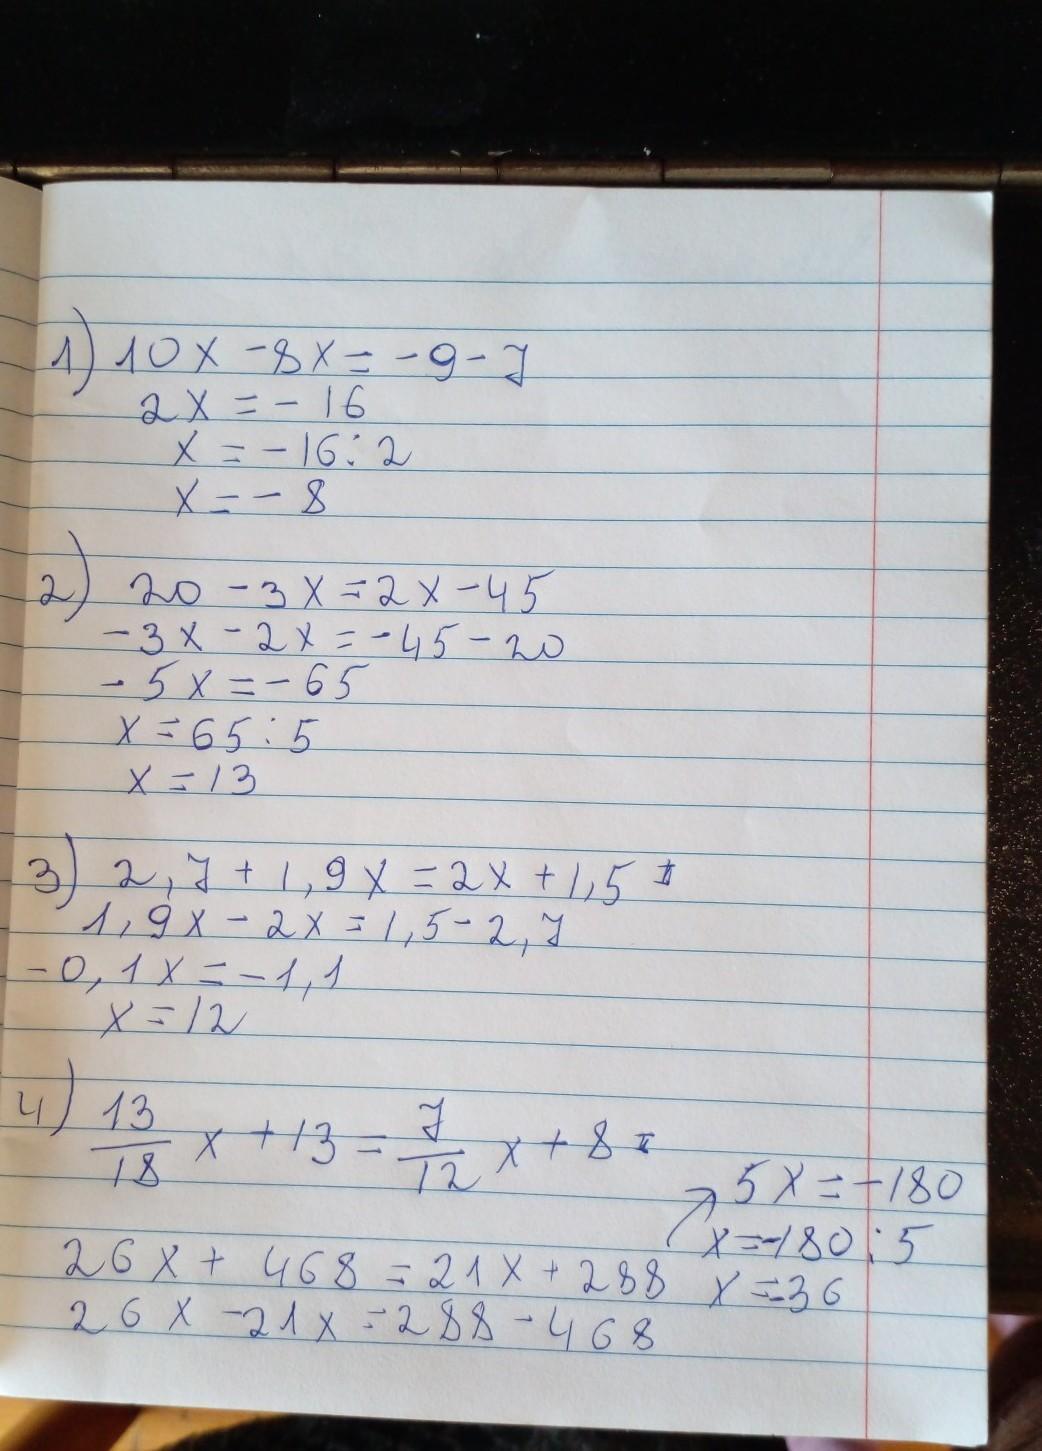 1) 10x - 8x = -9 - 7
2x = -16
x = -16 : 2
x = -8
2) 20 - 3x = 2x - 45
-3x - 2x = -45 - 20
-5x = -65
x = 65 : 5
x = 13
3) 2,7 + 1,9x = 2x + 1,5
1,9x - 2x = 1,5 - 2,7
-0,1x = -1,1
x = 12
4) 13/18 x + 13 = 7/12 x + 8
26x + 468 = 21x + 288
26x - 21x = 288 - 468
↗ 5x = -180
x = -180 : 5
x = -36